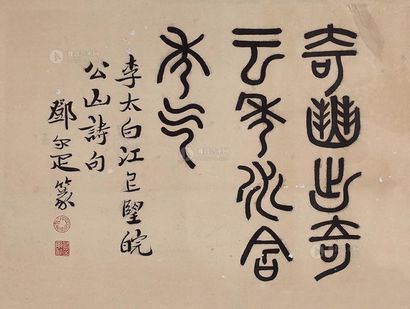 奇峯出奇
云秀木含
秀气
李太白江上望皖
公山詩句
鄧尔疋篆